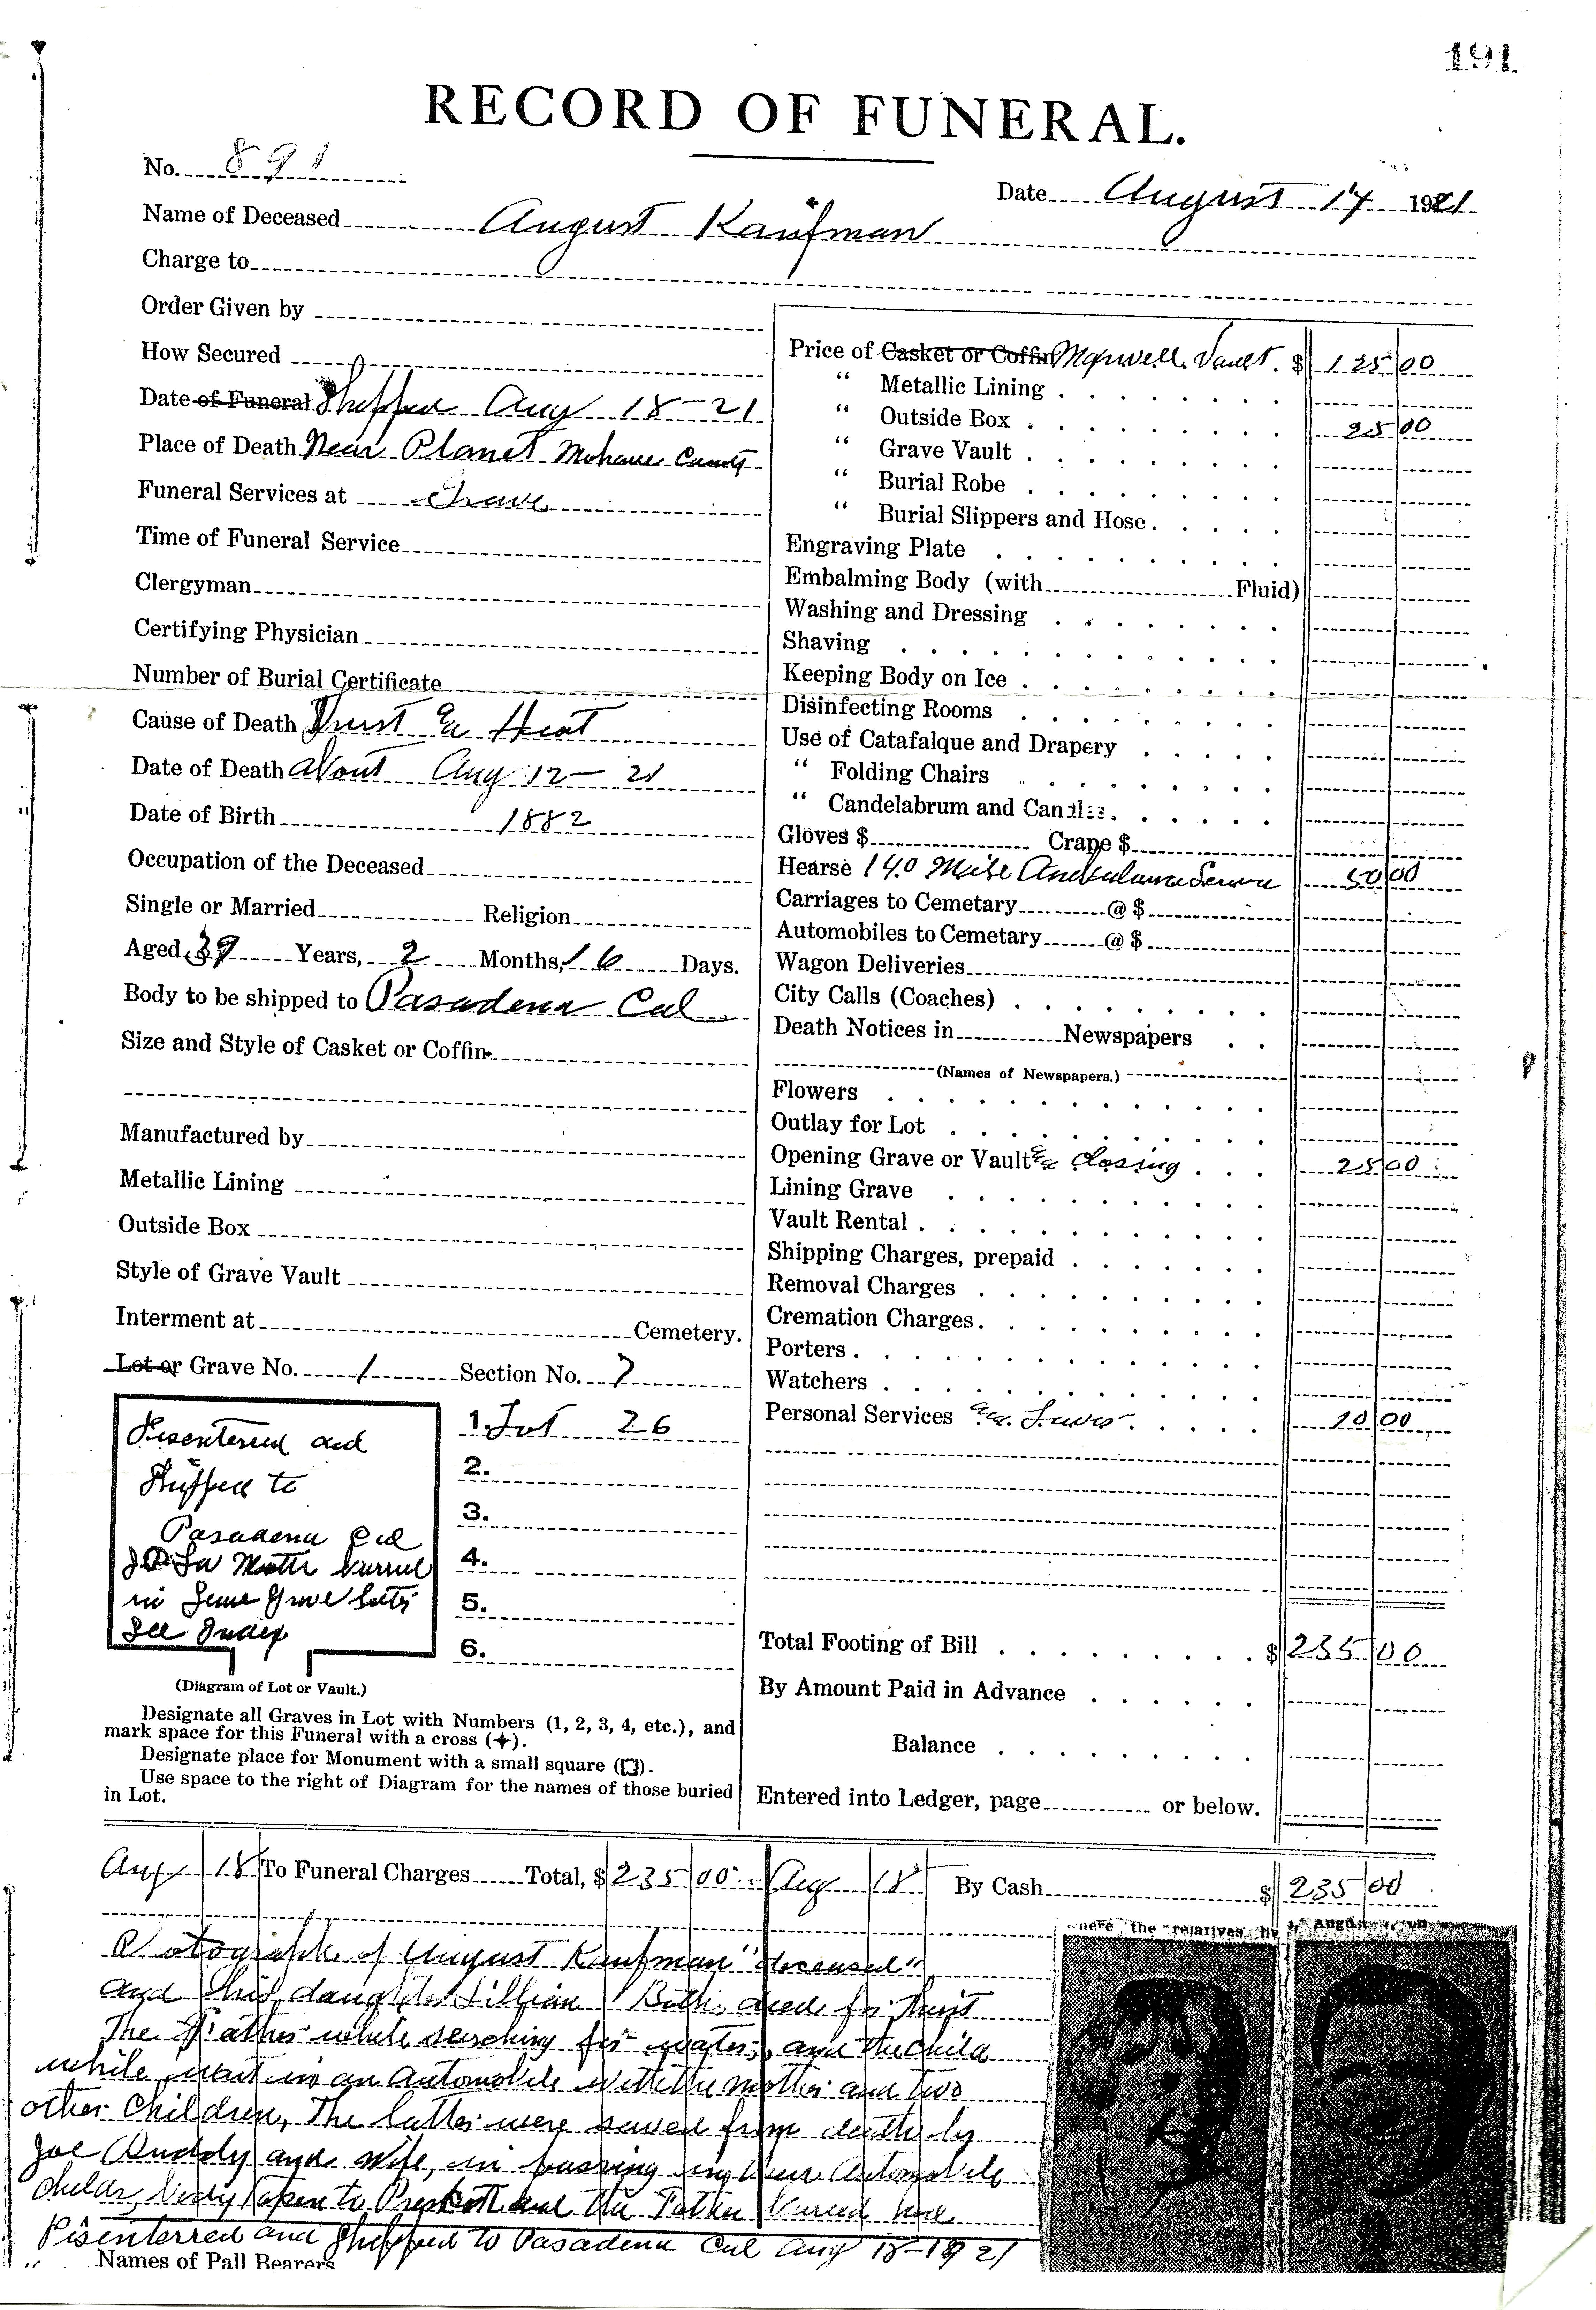 191
RECORD OF FUNERAL.
No. 891
Date August 17 1921
Name of Deceased August Kaufman
Charge to
Order Given by
How Secured
Date of Funeral Shipped Aug 18-21
Place of Death Near Planet Mohave County
Funeral Services at Grave
Time of Funeral Service
Clergyman
Certifying Physician
Number of Burial Certificate
Cause of Death Thirst & Heat
Date of Death About Aug 12-21
Date of Birth 1882
Occupation of the Deceased
Single or Married Religion
Aged 39 Years, 2 Months, 16 Days.
Body to be shipped to Pasadena Cal
Size and Style of Casket or Coffin
Manufactured by
Metallic Lining
Outside Box
Style of Grave Vault
Interment at Cemetery.
Lot or Grave No. 1 Section No. 7
Disenterred and
Shipped to
Pasadena Cal
in Same Grave
See Index
1. Lot 26
2.
3.
4.
5.
6.
(Diagram of Lot or Vault.)
Designate all Graves in Lot with Numbers (1, 2, 3, 4, etc.), and
mark space for this Funeral with a cross (✦).
Designate place for Monument with a small square (❏).
Use space to the right of Diagram for the names of those buried
in Lot.
Price of Casket or Coffin Vault. $ 125 00
“ Metallic Lining
“ Outside Box 25 00
“ Grave Vault
“ Burial Robe
“ Burial Slippers and Hose
Engraving Plate
Embalming Body (with Fluid)
Washing and Dressing
Shaving
Keeping Body on Ice
Disinfecting Rooms
Use of Catafalque and Drapery
“ Folding Chairs
“ Candelabrum and Candles
Gloves $ Crape $
Hearse 140 Mile Ambulance Service 50 00
Carriages to Cemetary @ $
Automobiles to Cemetary @ $
Wagon Deliveries
City Calls (Coaches)
Death Notices in Newspapers
(Names of Newspapers.)
Flowers
Outlay for Lot
Opening Grave or Vault & Closing 25 00
Lining Grave
Vault Rental
Shipping Charges, prepaid
Removal Charges
Cremation Charges
Porters
Watchers
Personal Services 10 00
Total Footing of Bill $ 235 00
By Amount Paid in Advance
Balance
Entered into Ledger, page or below.
Aug 18 To Funeral Charges Total, $ 235 00 Aug 18 By Cash $ 235 00
here the relatives
Photograph of August Kaufman "deceased"
and his daughter Lillian died for thirst
The Father while searching for water, and the child
while in an Automobile with the mother and two
other Children, The latter were saved from death by
Joe Buddy and wife, in passing in their Automobile
childs body taken to Prescott and the Father buried here
Disenterred and Shipped to Pasadena Cal Aug 18-1921
Names of Pall Bearers